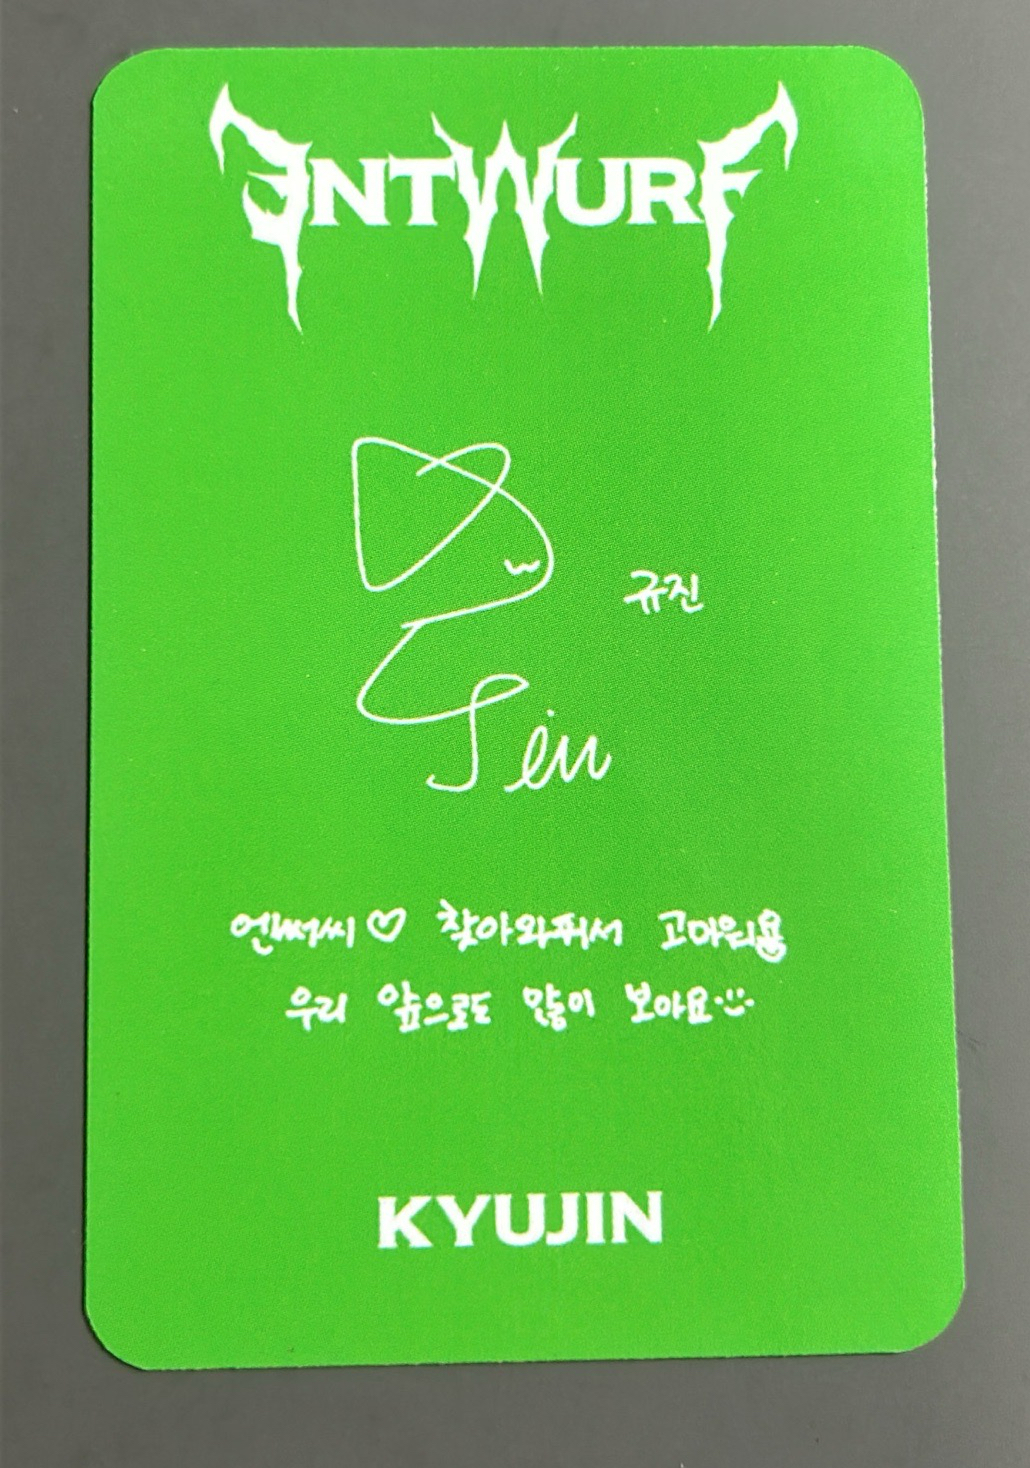 ENTWURF
규진
Jin
엔써씨♡ 찾아와줘서 고마워용
우리 앞으로도 많이 보아요
KYUJIN